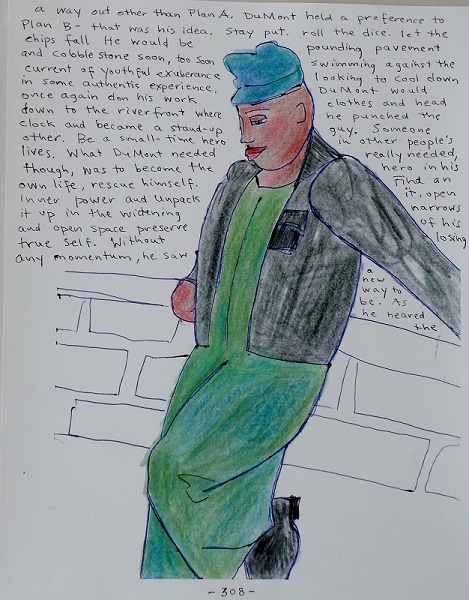 a way out other than Plan A. DuMont held a preference to
Plan B - that was his idea. Stay put. roll the dice. let the
chips fall. He would be pounding pavement
and cobble stone soon, too soon swimming against the
current of youthful exuberance looking to cool down
in some authentic experience. DuMont would
once again don his work clothes and head
down to the riverfront where he punched the
clock and became a stand-up guy. Someone
other. Be a small-time hero in other people's
lives. What DuMont needed really needed,
though, was to become the hero in his
own life, rescue himself. Find an
inner power and unpack it, open
it up in the widening narrows
and open space preserve of his
true self. Without losing
any momentum, he saw
a
new
way to
be. As
he neared
the
- 308 -